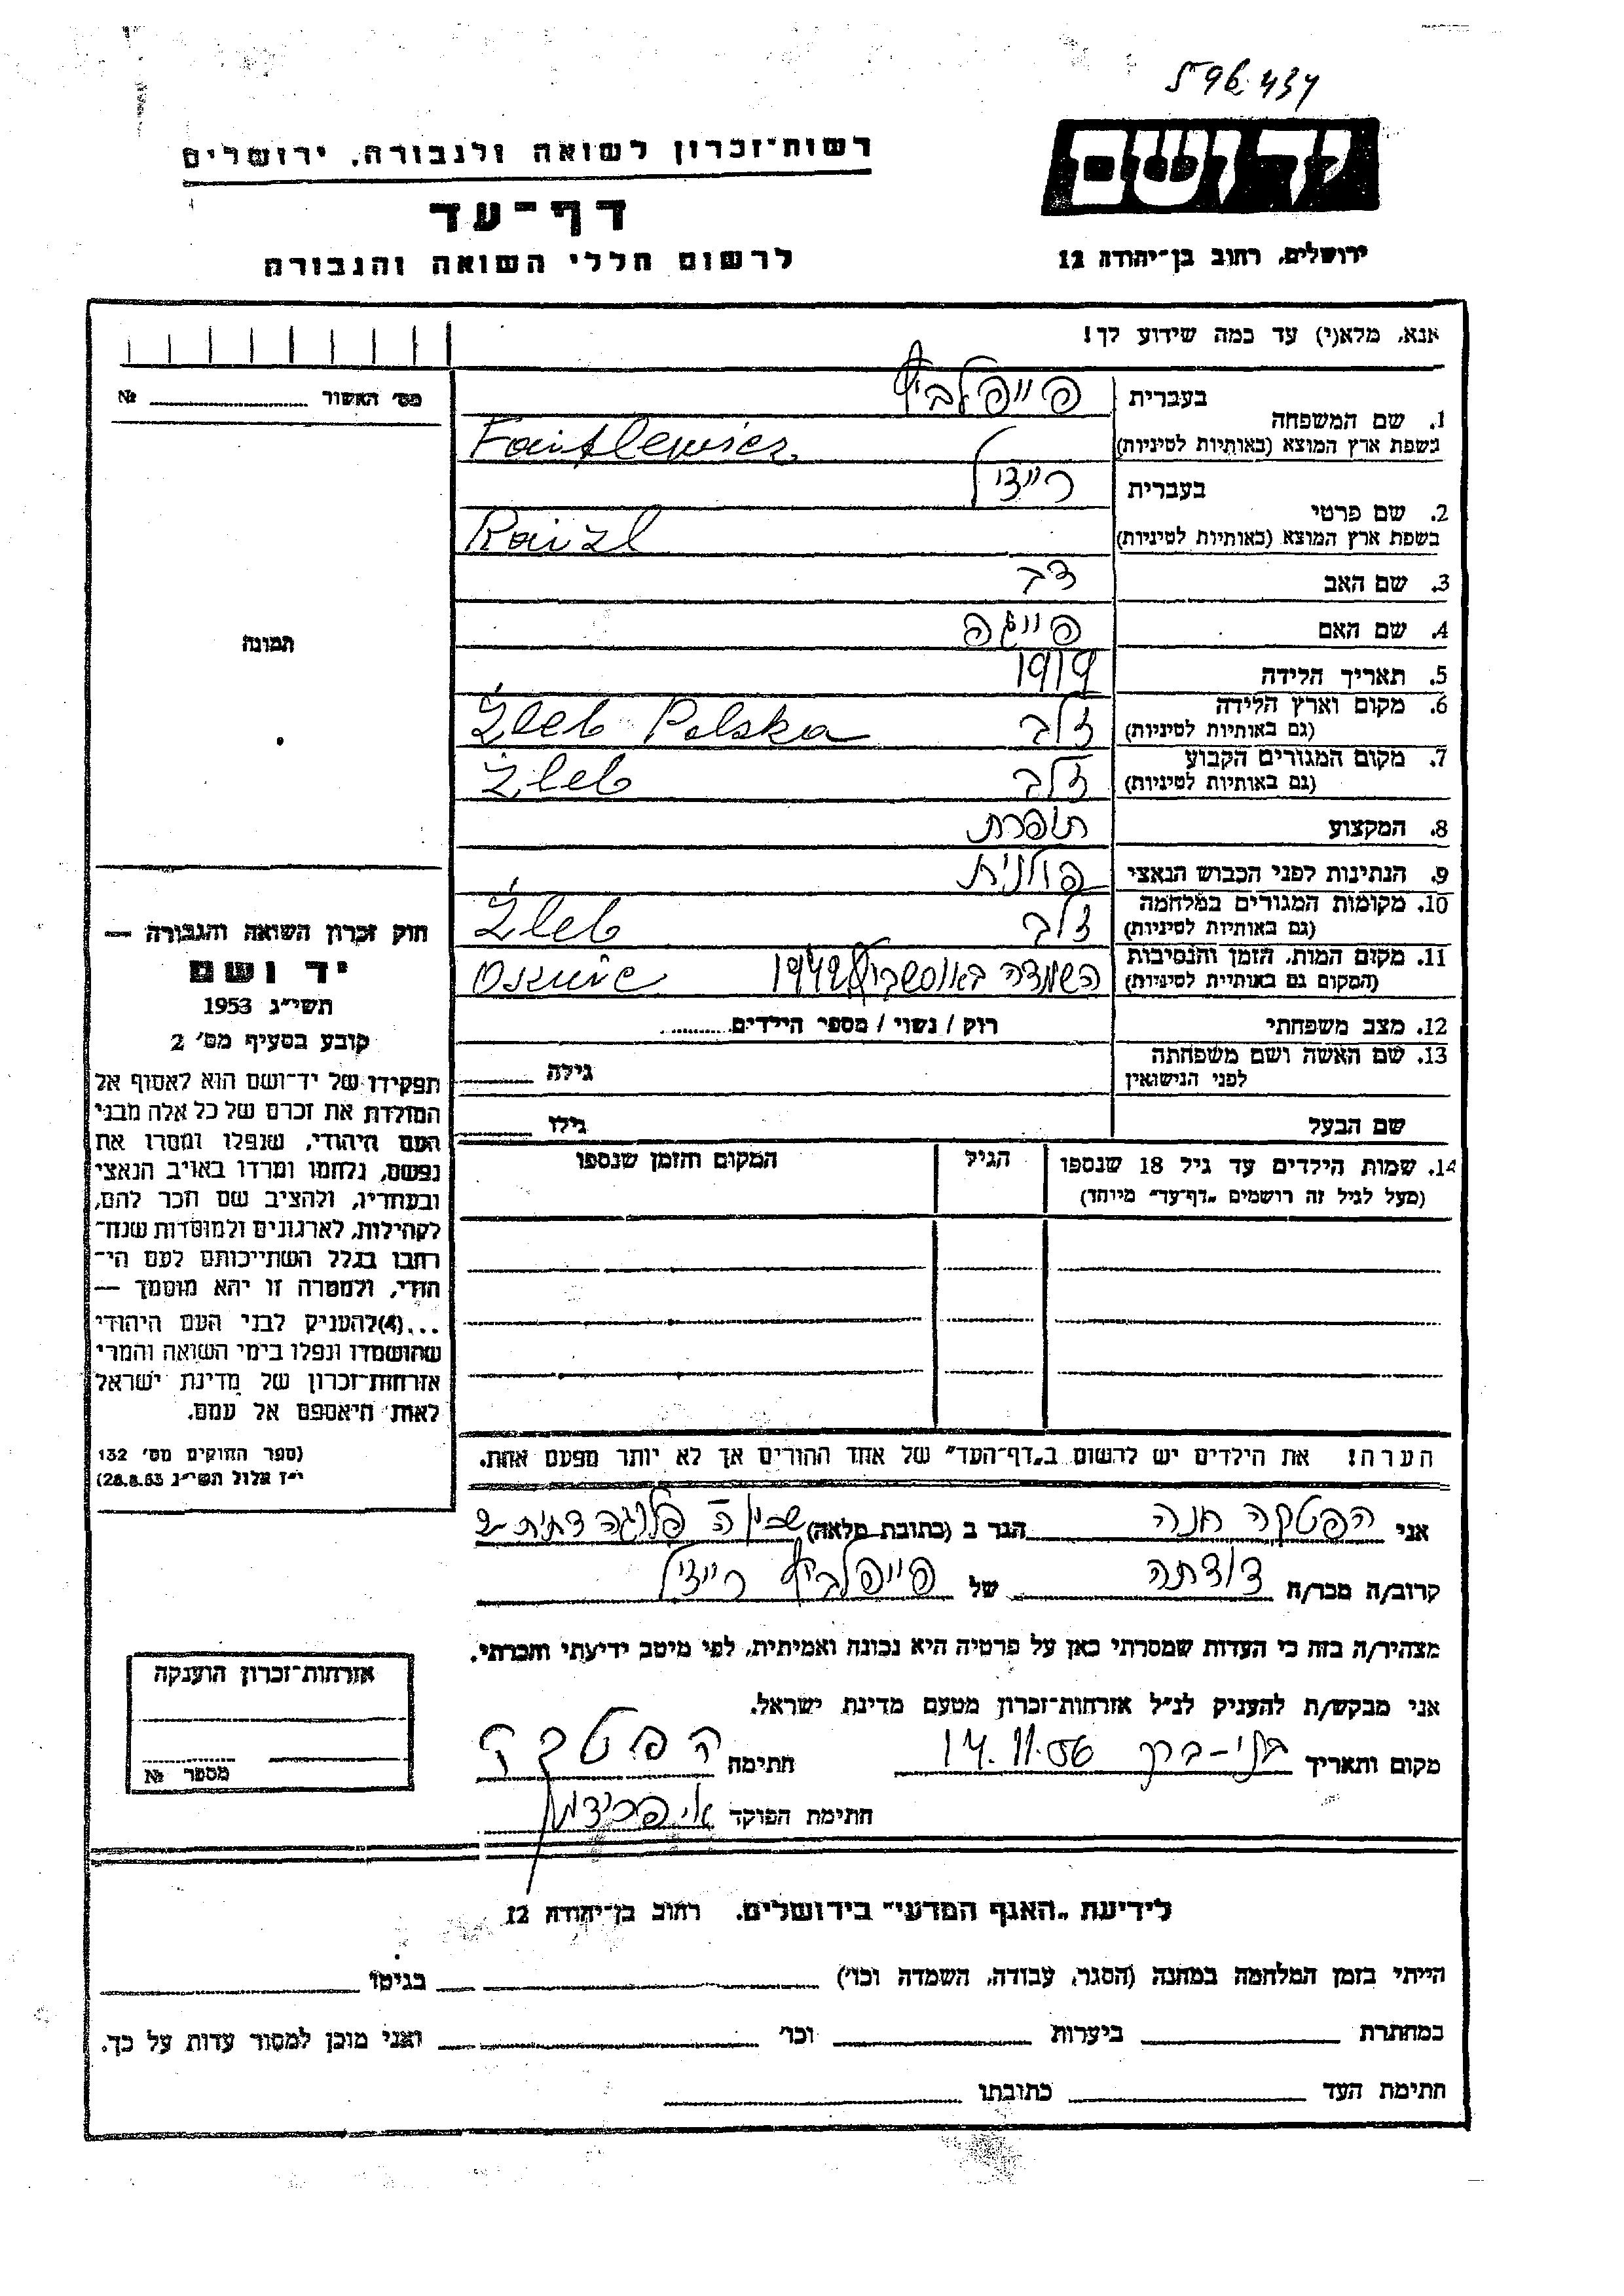 596434
יד ושם
ירושלים, רחוב בן־יהודה 12
רשות־זכרון לשואה ולגבורה, ירושלים
דף־עד
לרשום חללי השואה והגבורה
אנא, מלא(י) עד כמה שידוע לך!
מס׳ האשור № 
1. שם המשפחה
בעברית פייפלביץ
בשפת ארץ המוצא (באותיות לטיניות)
2. שם פרטי
בעברית רייזל
בשפת ארץ המוצא (באותיות לטיניות) Raizl
3. שם האב דב
4. שם האם פייגה
5. תאריך הלידה 1919
6. מקום וארץ הלידה
(גם באותיות לטיניות) זלב Żleb Polska
7. מקום המגורים הקבוע
(גם באותיות לטיניות) זלב Żleb
8. המקצוע תופרת
9. הנתינות לפני הכבוש הנאצי פולנית
10. מקומות המגורים במלחמה
(גם באותיות לטיניות) זלב Żleb
11. מקום המות, הזמן והנסיבות
(המקום גם באותיית לטיניות) השמדה באושביץ 1942
12. מצב משפחתי רוק / נשוי / מספר הילדים
13. שם האשה ושם משפחתה
לפני הנישואין גילה
שם הבעל גילו
14. שמות הילדים עד גיל 18 שנספו הגיל המקום והזמן שנספו
(מעל לגיל זה רושמים „דף־עד״ מיוחד)
הערה! את הילדים יש לרשום ב„דף־העד״ של אחד ההורים אך לא יותר מפעם אחת.
תמונה
חוק זכרון השואה והגבורה —
יד ושם
תשי״ג 1953
קובע בסעיף מס׳ 2
תפקידו של יד־ושם הוא לאסוף אל
המולדת את זכרם של כל אלה מבני
העם היהודי, שנפלו ומסרו את
נפשם, נלחמו ומרדו באויב הנאצי
ובעוזריו, ולהציב שם וזכר להם,
לקהילות, לארגונים ולמוסדות שנח־
רבו בגלל השתייכותם לעם הי־
הודי, ולמטרה זו יהא מוסמך —
...(4) להעניק לבני העם היהודי
שהושמדו ונפלו בימי השואה והמרי
אזרחות־זכרון של מדינת ישראל
לאות היאספם אל עמם.
(ספר החוקים מס׳ 132
י״ז אלול תשי״ג 28.8.53)
אני הפטקה חנה הגר ב (כתובת מלאה)
קרוב/ה מכר/ה דודתה של פייפלביץ רייזל
מצהיר/ה בזה כי העדות שמסרתי כאן על פרטיה היא נכונה ואמיתית, לפי מיטב ידיעתי והכרתי.
אני מבקש/ת להעניק לנ״ל אזרחות־זכרון מטעם מדינת ישראל.
מקום ותאריך בני-ברק 14.11.56 חתימה
חתימת הפוקד
אזרחות־זכרון הוענקה
מספר №
לידיעת „האגף המדעי״ בירושלים. רחוב בן־יהודה 12
הייתי בזמן המלחמה במחנה (הסגר, עבודה, השמדה וכו׳) בגיטו
במחתרת ביערות וכו׳ ואני מוכן למסור עדות על כך.
חתימת העד כתובתו